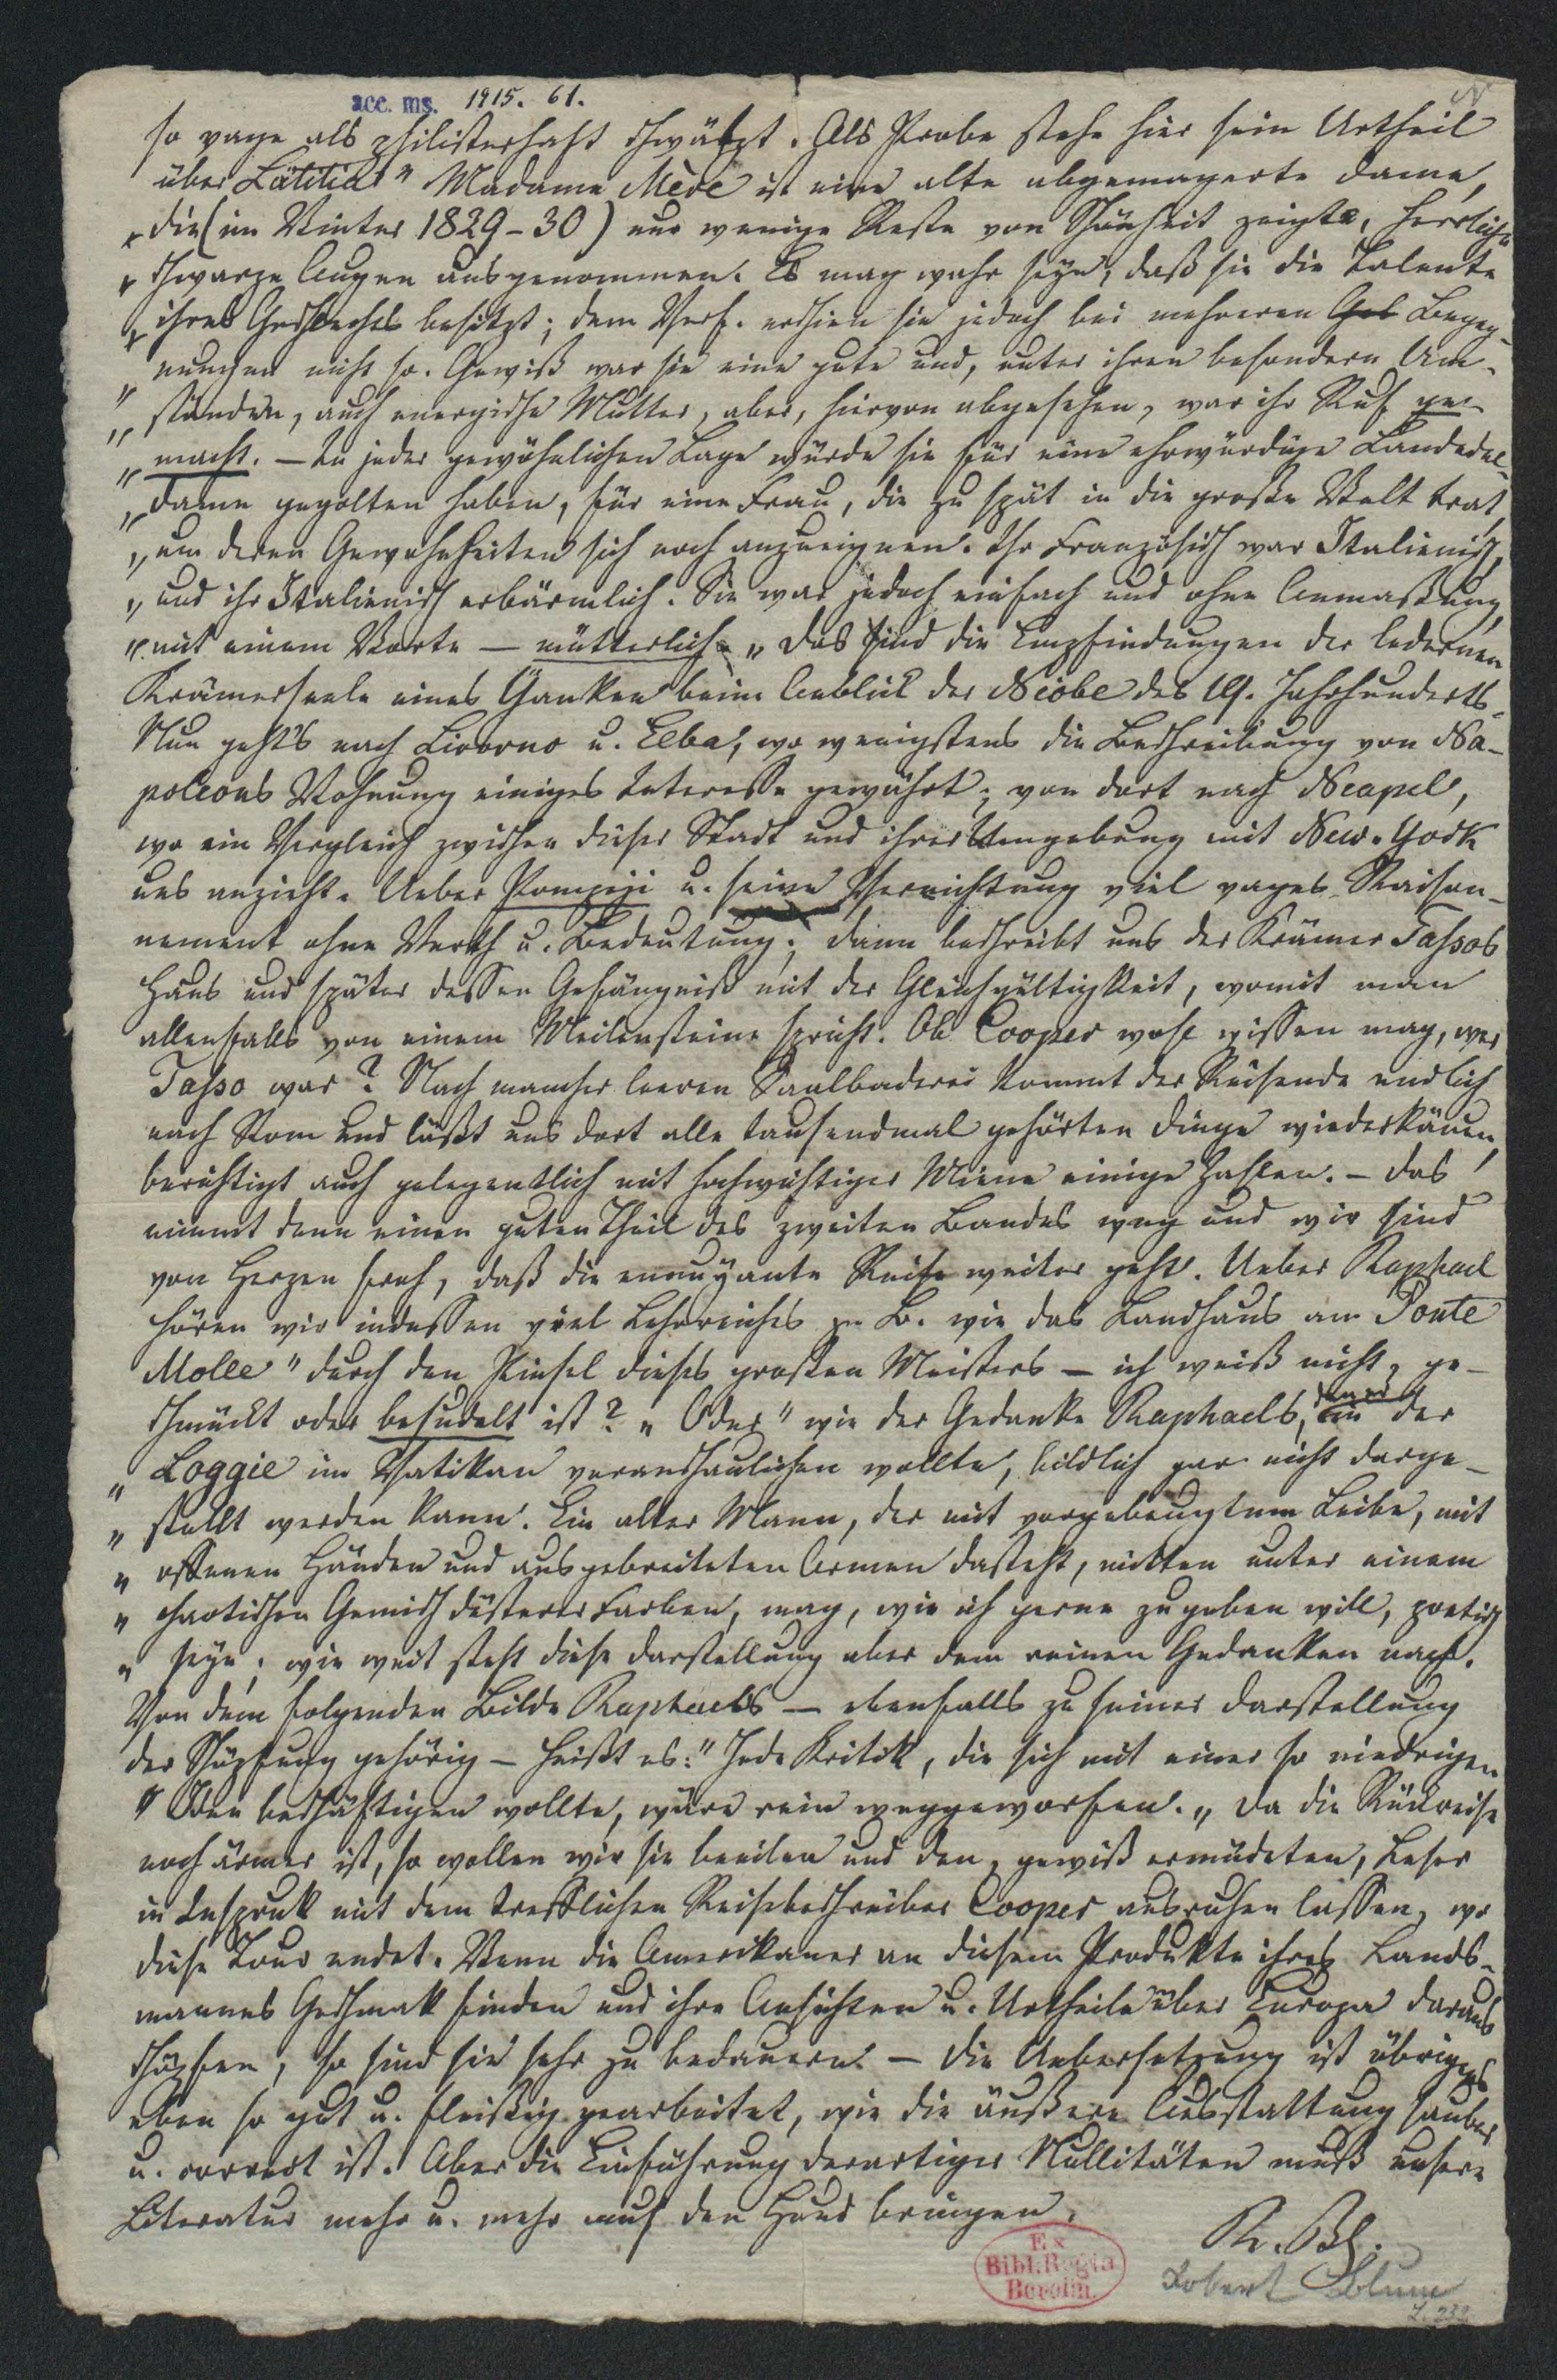 acc. ms. 1915. 61.
so vage als philisterhaft schwätzt. Als Probe stehe hier sein Urtheil
über Lätitia: " Madame Mère ist eine alte abgemagerte Dame,
" die (im Winter 1829-30) nur wenige Reste von Schönheit zeigte, herrliche
" schwarze Augen ausgenommen. Es mag wahr seyn, daß sie die Talente
" ihres Geschlechts besitzt; dem Verf. erschien sie jedoch bei mehreren Gel Begeg-
" nungen nicht so. Gewiß war sie eine gute und, unter ihren besondern Um-
" ständen, auch energische Mutter, aber, hiervon abgesehen, war ihr Ruf ge-
" macht. – In jeder gewöhnlichen Lage würde sie für eine ehrwürdige Landedel-
" dame gegolten haben, für eine Frau, die zu spät in die große Welt trat,
" um deren Gewohnheiten sich noch anzueignen. Ihr Französisch war Italienisch,
" und ihr Italienisch erbärmlich. Sie war jedoch einfach und ohne Anmaßung,
" mit einem Worte – mütterlich." Das sind die Empfindungen der ledernen
Krämerseele eines Yankee beim Anblick der Niobe des 19. Jahrhunderts.
Nun geht's nach Livorno u. Elba, wo wenigstens die Beschreibung von Na-
poleons Wohnung einiges Interesse gewährt; von dort nach Neapel,
wo ein Vergleich zwischen dieser Stadt und ihrer Umgebung mit New-York
uns anzieht. Ueber Pompeji u. seine Vernichtung viel vages Raison-
nement ohne Werth u. Bedeutung; dann beschreibt uns der Krämer Tassos
Haus und später dessen Gefängniß mit der Gleichgültigkeit, womit man
allenfalls von einem Meilensteine spricht. Ob Cooper wohl wissen mag, wer
Tasso war? Nach mancher leeren Saalbaderei kommt der Reisende endlich
nach Rom und läßt uns dort alle tausendmal gehörten Dinge wiederkäuen,
berichtigt auch gelegentlich mit hochwichtiger Miene einige Zahlen. – Das
nimmt denn einen guten Theil des zweiten Bandes weg und wir sind
von Herzen froh, daß die ennuyante Reise weiter geht. Ueber Raphael
hören wir indessen viel Lehrreiches z. B. wie das Landhaus am Ponte
Molle " durch den Pinsel dieses großen Meisters – ich weiß nicht, ge-
schmückt oder besudelt ist? " Oder " wie der Gedanke Raphaels, den er in der
" Loggie im Vatikan veranschaulichen wollte, bildlich gar nicht darge-
" stellt werden kann. Ein alter Mann, der mit vorgebeugtem Leibe, mit
" offenen Händen und ausgebreiteten Armen dasteht, mitten unter einem
" chaotischen Gemisch düsterer Farben, mag, wie ich gerne zugeben will, poetisch
" seyn; wie weit steht diese Darstellung aber dem reinen Gedanken nach.
Von dem folgenden Bilde Raphaels – ebenfalls zu seiner Darstellung
der Schöpfung gehörig – heißt es: " Jede Kritik, die sich mit einer so niedrigen
" Idee beschäftigen wollte, wäre rein weggeworfen. " Da die Rückreise
noch ärmer ist, so wollen wir sie beeilen und den, gewiß ermüdeten, Leser
in Inspruk mit dem trefflichen Reisebeschreiber Cooper ausruhen lassen, wo
diese Tour endet. Wenn die Amerikaner an diesem Produkte ihres Lands-
mannes Geschmak finden und ihre Ansichten u. Urtheile über Europa daraus
schöpfen, so sind sie sehr zu bedauern. – Die Uebersetzung ist übrigens
eben so gut u. fleißig gearbeitet, wie die äußere Ausstattung sauber
u. correct ist. Aber die Einführung derartiger Nullitäten muß unsere
Literatur mehr u. mehr auf den Hund bringen.
R. Bl.
Ex
Bibl. Regia
Berolin.
Robert Blum